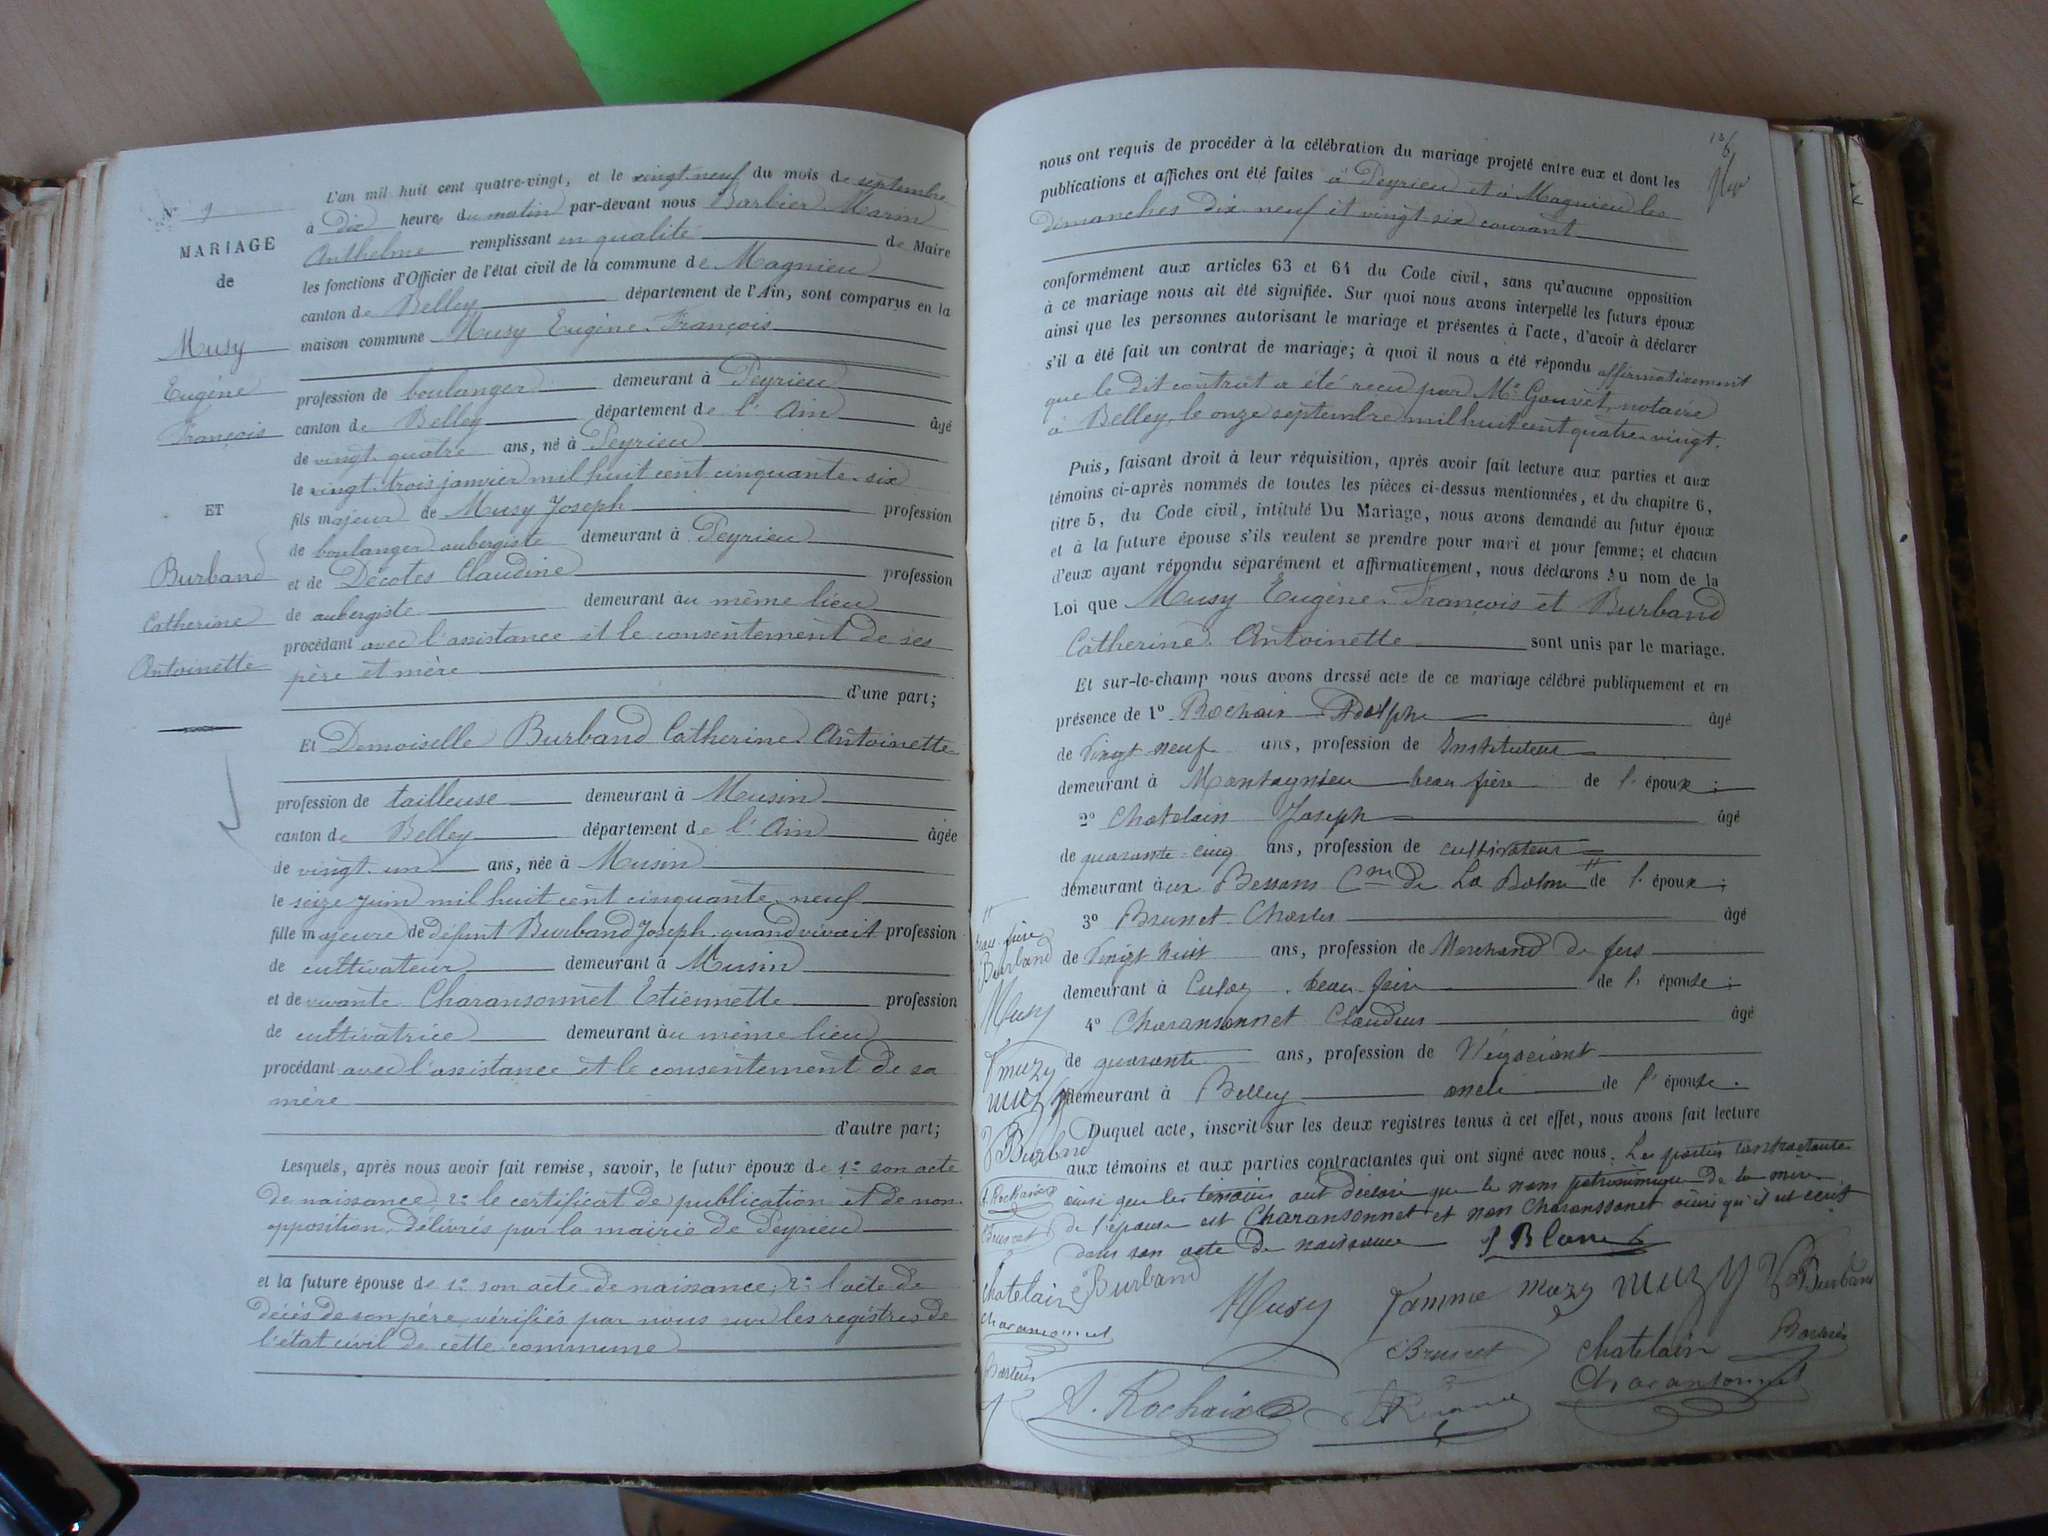 N° 9
MARIAGE
de
Musy
Eugène
François
ET
Burband
Catherine
Antoinette
L'an mil huit cent quatre-vingt, et le vingt-neuf du mois de septembre
à dix heures du matin par-devant nous Barbier Marin
Anthelme remplissant en qualité de Maire
les fonctions d'Officier de l'état civil de la commune de Magnieu
canton de Belley département de l'Ain, sont comparus en la
maison commune Musy Eugène François
profession de boulanger demeurant à Peyrieu
canton de Belley département de l'Ain âgé
de vingt quatre ans, né à Peyrieu
le vingt-trois janvier mil huit cent cinquante-six
fils majeur de Musy Joseph profession
de boulanger aubergiste demeurant à Peyrieu
et de Décotes Claudine profession
de aubergiste demeurant au même lieu
procédant avec l'assistance et le consentement de ses
père et mère
d'une part;
Et Demoiselle Burband Catherine Antoinette
profession de tailleuse demeurant à Musin
canton de Belley département de l'Ain âgée
de vingt-un ans, née à Musin
le seize juin mil huit cent cinquante-neuf
fille majeure de défunt Burband Joseph quand vivait profession
de cultivateur demeurant à Musin
et de vivante Charansonnet Etiennette profession
de cultivatrice demeurant au même lieu
procédant avec l'assistance et le consentement de sa
mère
d'autre part;
Lesquels, après nous avoir fait remise, savoir, le futur époux de 1° son acte
de naissance, 2° le certificat de publication et de non-
opposition délivrés par la mairie de Peyrieu
et la future épouse de 1° son acte de naissance; 2° l'acte de
décès de son père, vérifiés par nous sur les régistres de
l'état civil de cette commune
nous ont requis de procéder à la célébration du mariage projeté entre eux et dont les
publications et affiches ont été faites à Peyrieu et à Magnieu les
dimanches dix-neuf et vingt-six courant
conformément aux articles 63 et 64 du Code civil, sans qu'aucune opposition
à ce mariage nous ait été signifiée. Sur quoi nous avons interpellé les futurs époux
ainsi que les personnes autorisant le mariage et présentes à l'acte, d'avoir à déclarer
s'il a été fait un contrat de mariage; à quoi il nous a été répondu affirmativement
que le dit contrat a été reçu par Me Gouvet, notaire
à Belley, le onze septembre mil huit cent quatre-vingt.
Puis, faisant droit à leur réquisition, après avoir fait lecture aux parties et aux
témoins ci-après nommés de toutes les pièces ci-dessus mentionnées, et du chapitre 6,
titre 5, du Code civil, intitulé Du Mariage, nous avons demandé au futur époux
et à la future épouse s'ils veulent se prendre pour mari et pour femme; et chacun
d'eux ayant répondu séparément et affirmativement, nous déclarons au nom de la
Loi que Musy Eugène François et Burband
Catherine Antoinette sont unis par le mariage.
Et sur-le-champ nous avons dressé acte de ce mariage célébré publiquement et en
présence de 1° Rochaix Adolphe âgé
de vingt neuf ans, profession de Instituteur
demeurant à Montagnieu beau frère de l'époux;
2° Chatelain Joseph âgé
de quarante-cinq ans, profession de cultivateur
demeurant aux Bessons Cne de La Balme de l'époux;
3° Brunet Charles âgé
de vingt huit ans, profession de Marchand de fers
demeurant à Culoz beau frère de l'épouse;
4° Charansonnet Claudius âgé
de quarante ans, profession de Négociant
demeurant à Belley oncle de l'épouse.
Duquel acte, inscrit sur les deux registres tenus à cet effet, nous avons fait lecture
aux témoins et aux parties contractantes qui ont signé avec nous. Les parties contractantes
ainsi que les témoins ont déclaré que le nom patronimique de la mère
de l'épouse est Charansonnet et non Charanssonet ainsi qu'il est écrit
dans son acte de naissance
Burband Musy Famme mozy muzy Burband
Brunet Chatelain Barbier
A. Rochaix Charansonnet
beau-frère
Burband
Musy
muzy
Burband
A. Rochaix
Brunet
Chatelain
Charansonnet
Barbier